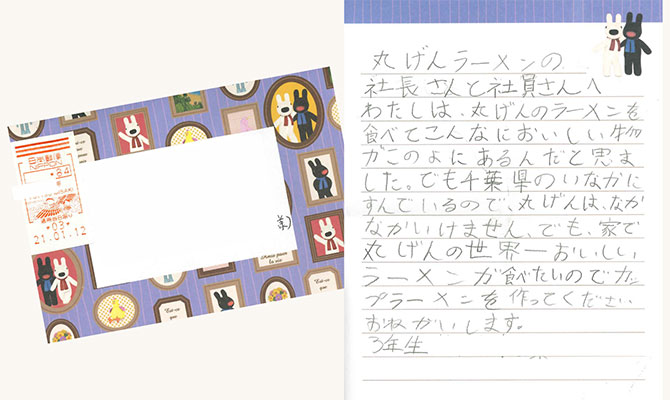 日本郵便
NIPPON
84
21.01.12
丸げんラーメンの
社長さんと社員さんへ
わたしは、丸げんのラーメンを
食べてこんなにおいしい物
がこのよにあるんだと思ま
した。でも千葉県のいなかに
すんでいるので、丸げんは、なか
なかいけません、でも、家で
丸げんの世界一おいしい
ラーメンが食べたいのでカッ
プラーメンを作ってください
おねがいします。
3年生